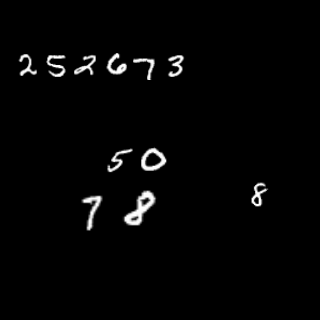 252673
50
78
8